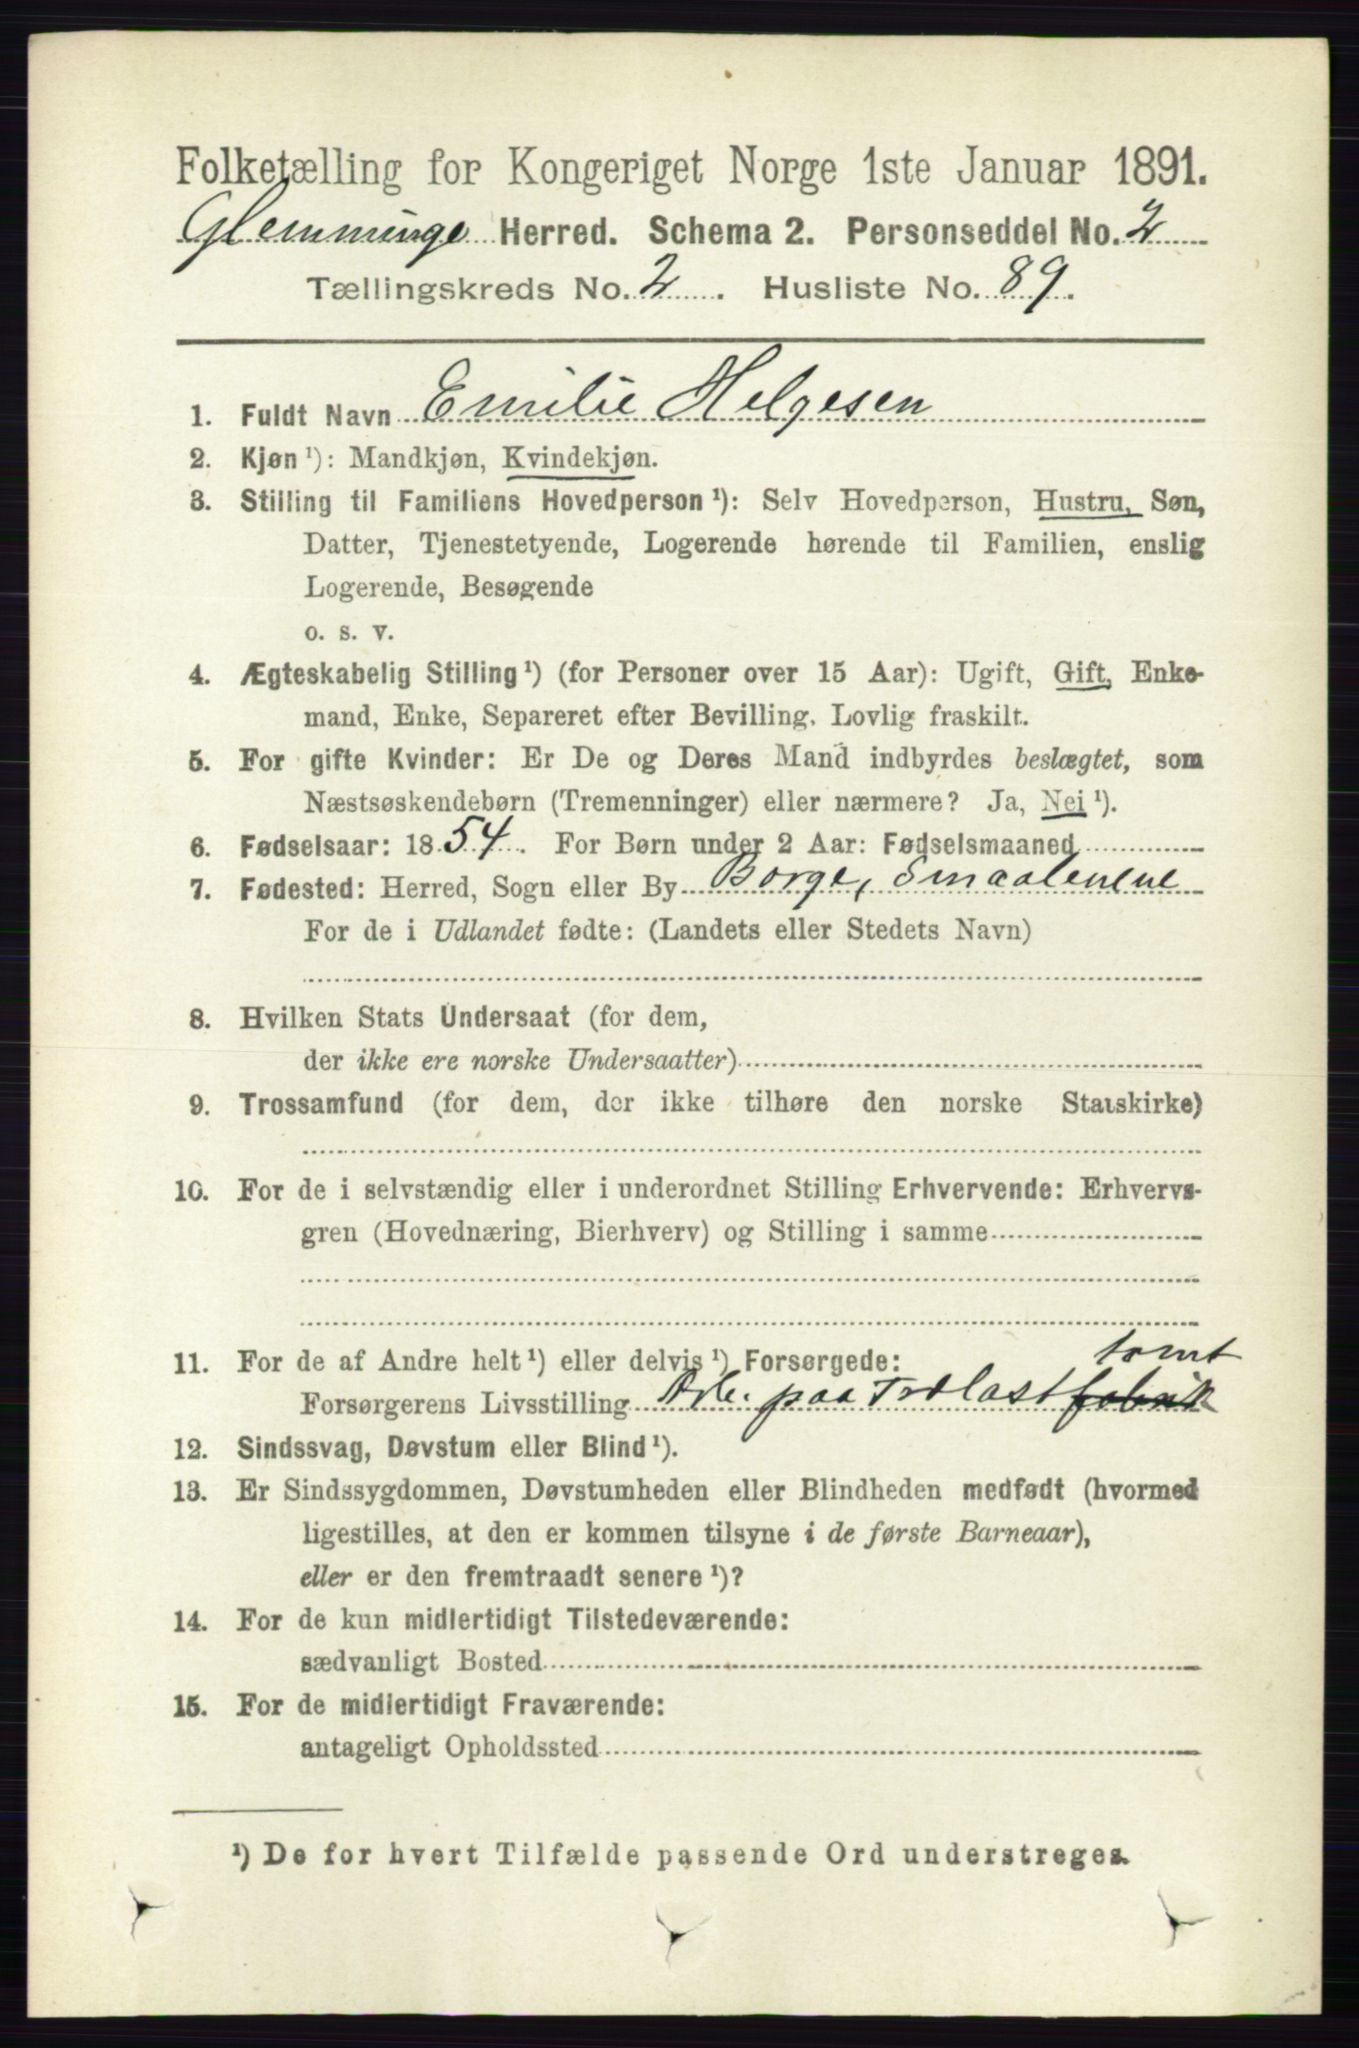 Folketælling for Kongeriget Norge 1ste Januar 1891.
Glemminge Herred. Schema 2. Personseddel No. 2
Tællingskreds No. 2. Husliste No. 89.
1. Fuldt Navn Emilie Helgesen
2. Kjøn ¹): Mandkjøn, Kvindekjøn.
3. Stilling til Familiens Hovedperson ¹): Selv Hovedperson, Hustru, Søn,
Datter, Tjenestetyende, Logerende hørende til Familien, enslig
Logerende, Besøgende
o. s. v.
4. Ægteskabelig Stilling ¹) (for Personer over 15 Aar): Ugift, Gift, Enke-
mand, Enke, Separeret efter Bevilling. Lovlig fraskilt.
5. For gifte Kvinder: Er De og Deres Mand indbyrdes beslægtet, som
Næstsøskendebørn (Tremenninger) eller nærmere? Ja, Nei ¹).
6. Fødselsaar: 1854. For Børn under 2 Aar: Fødselsmaaned
7. Fødested: Herred, Sogn eller By Borge, Smaalenene
For de i Udlandet fødte: (Landets eller Stedets Navn)
8. Hvilken Stats Undersaat (for dem,
der ikke ere norske Undersaatter)
9. Trossamfund (for dem, der ikke tilhøre den norske Statskirke)
10. For de i selvstændig eller i underordnet Stilling Erhvervende: Erhvervs-
gren (Hovednæring, Bierhverv) og Stilling i samme
11. For de af Andre helt ¹) eller delvis ¹) Forsørgede: tomt
Forsørgerens Livsstilling Arb. paa Trælast fabrik
12. Sindssvag, Døvstum eller Blind ¹).
13. Er Sindssygdommen, Døvstumheden eller Blindheden medfødt (hvormed
ligestilles, at den er kommen tilsyne i de første Barneaar),
eller er den fremtraadt senere ¹)?
14. For de kun midlertidigt Tilstedeværende:
sædvanligt Bosted
15. For de midlertidigt Fraværende:
antageligt Opholdssted
¹) De for hvert Tilfælde passende Ord understreges.